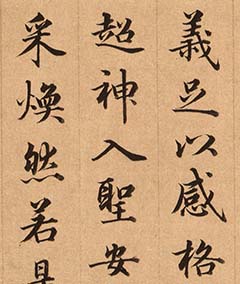 義足以感格
超神入聖安
采煥然若